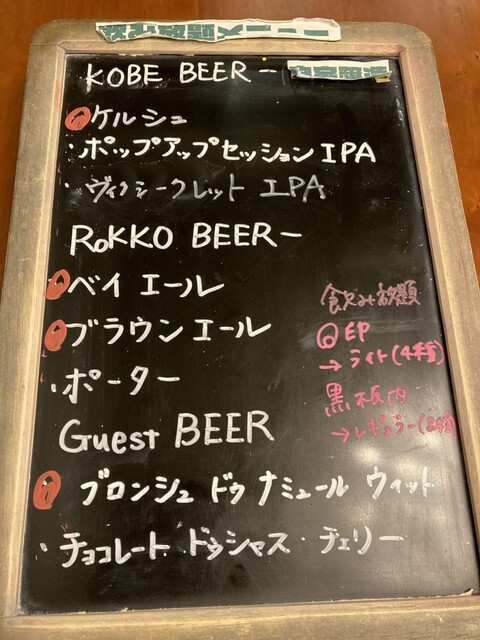 KOBE BEER ー
ケルシュ
・ポップアップセッションIPA
・ヴィクシークレット IPA
RoKKO BEER ー
ベイ エール
ブラウンエール
・ポーター
Guest BEER
ブロンシュ ドゥ ナミュール ウィット
・チョコレート ドゥシャス・チェリー
飲み放題
EP
→ライト(4種)
黒板内
→レギュラー(8種)